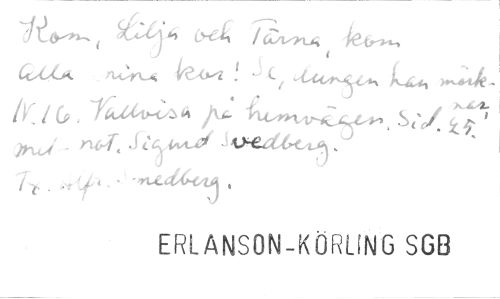 Kom, Lilja och Tärna, kom
alla mina kor! Se, lungen han mörk-
N. 16. Vallvisa på hemvägen. Sid. 25. nar,
med not. Sigurd Svedberg.
Tx. Alfr. Smedberg.
ERLANSON-KÖRLING SGB